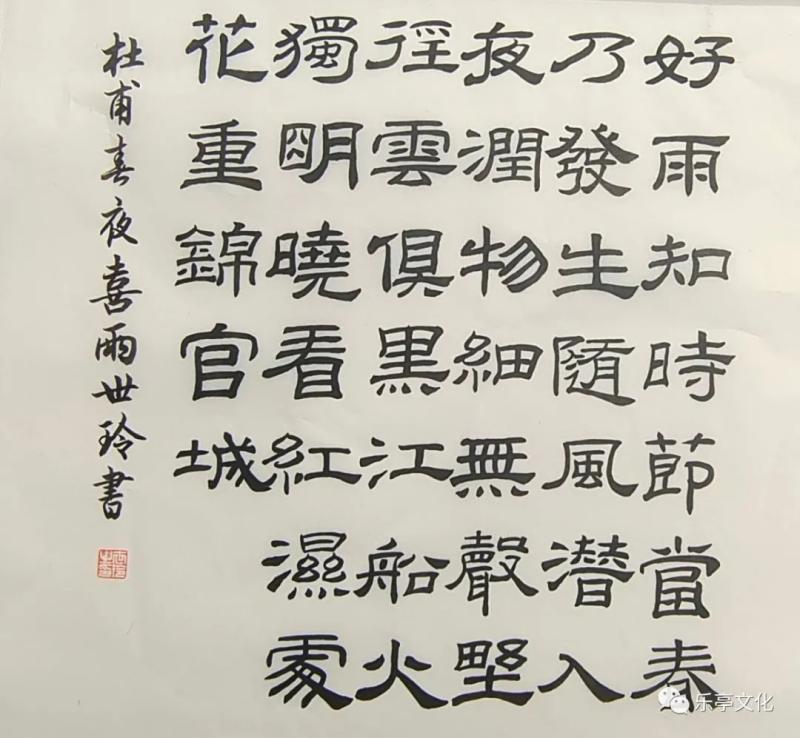 好雨知時節當春
乃發生隨風潜入
夜潤物細無聲野
徑雲俱黑江船火
獨明曉看紅濕處
花重錦官城
杜甫春夜喜雨世玲書
乐亭文化